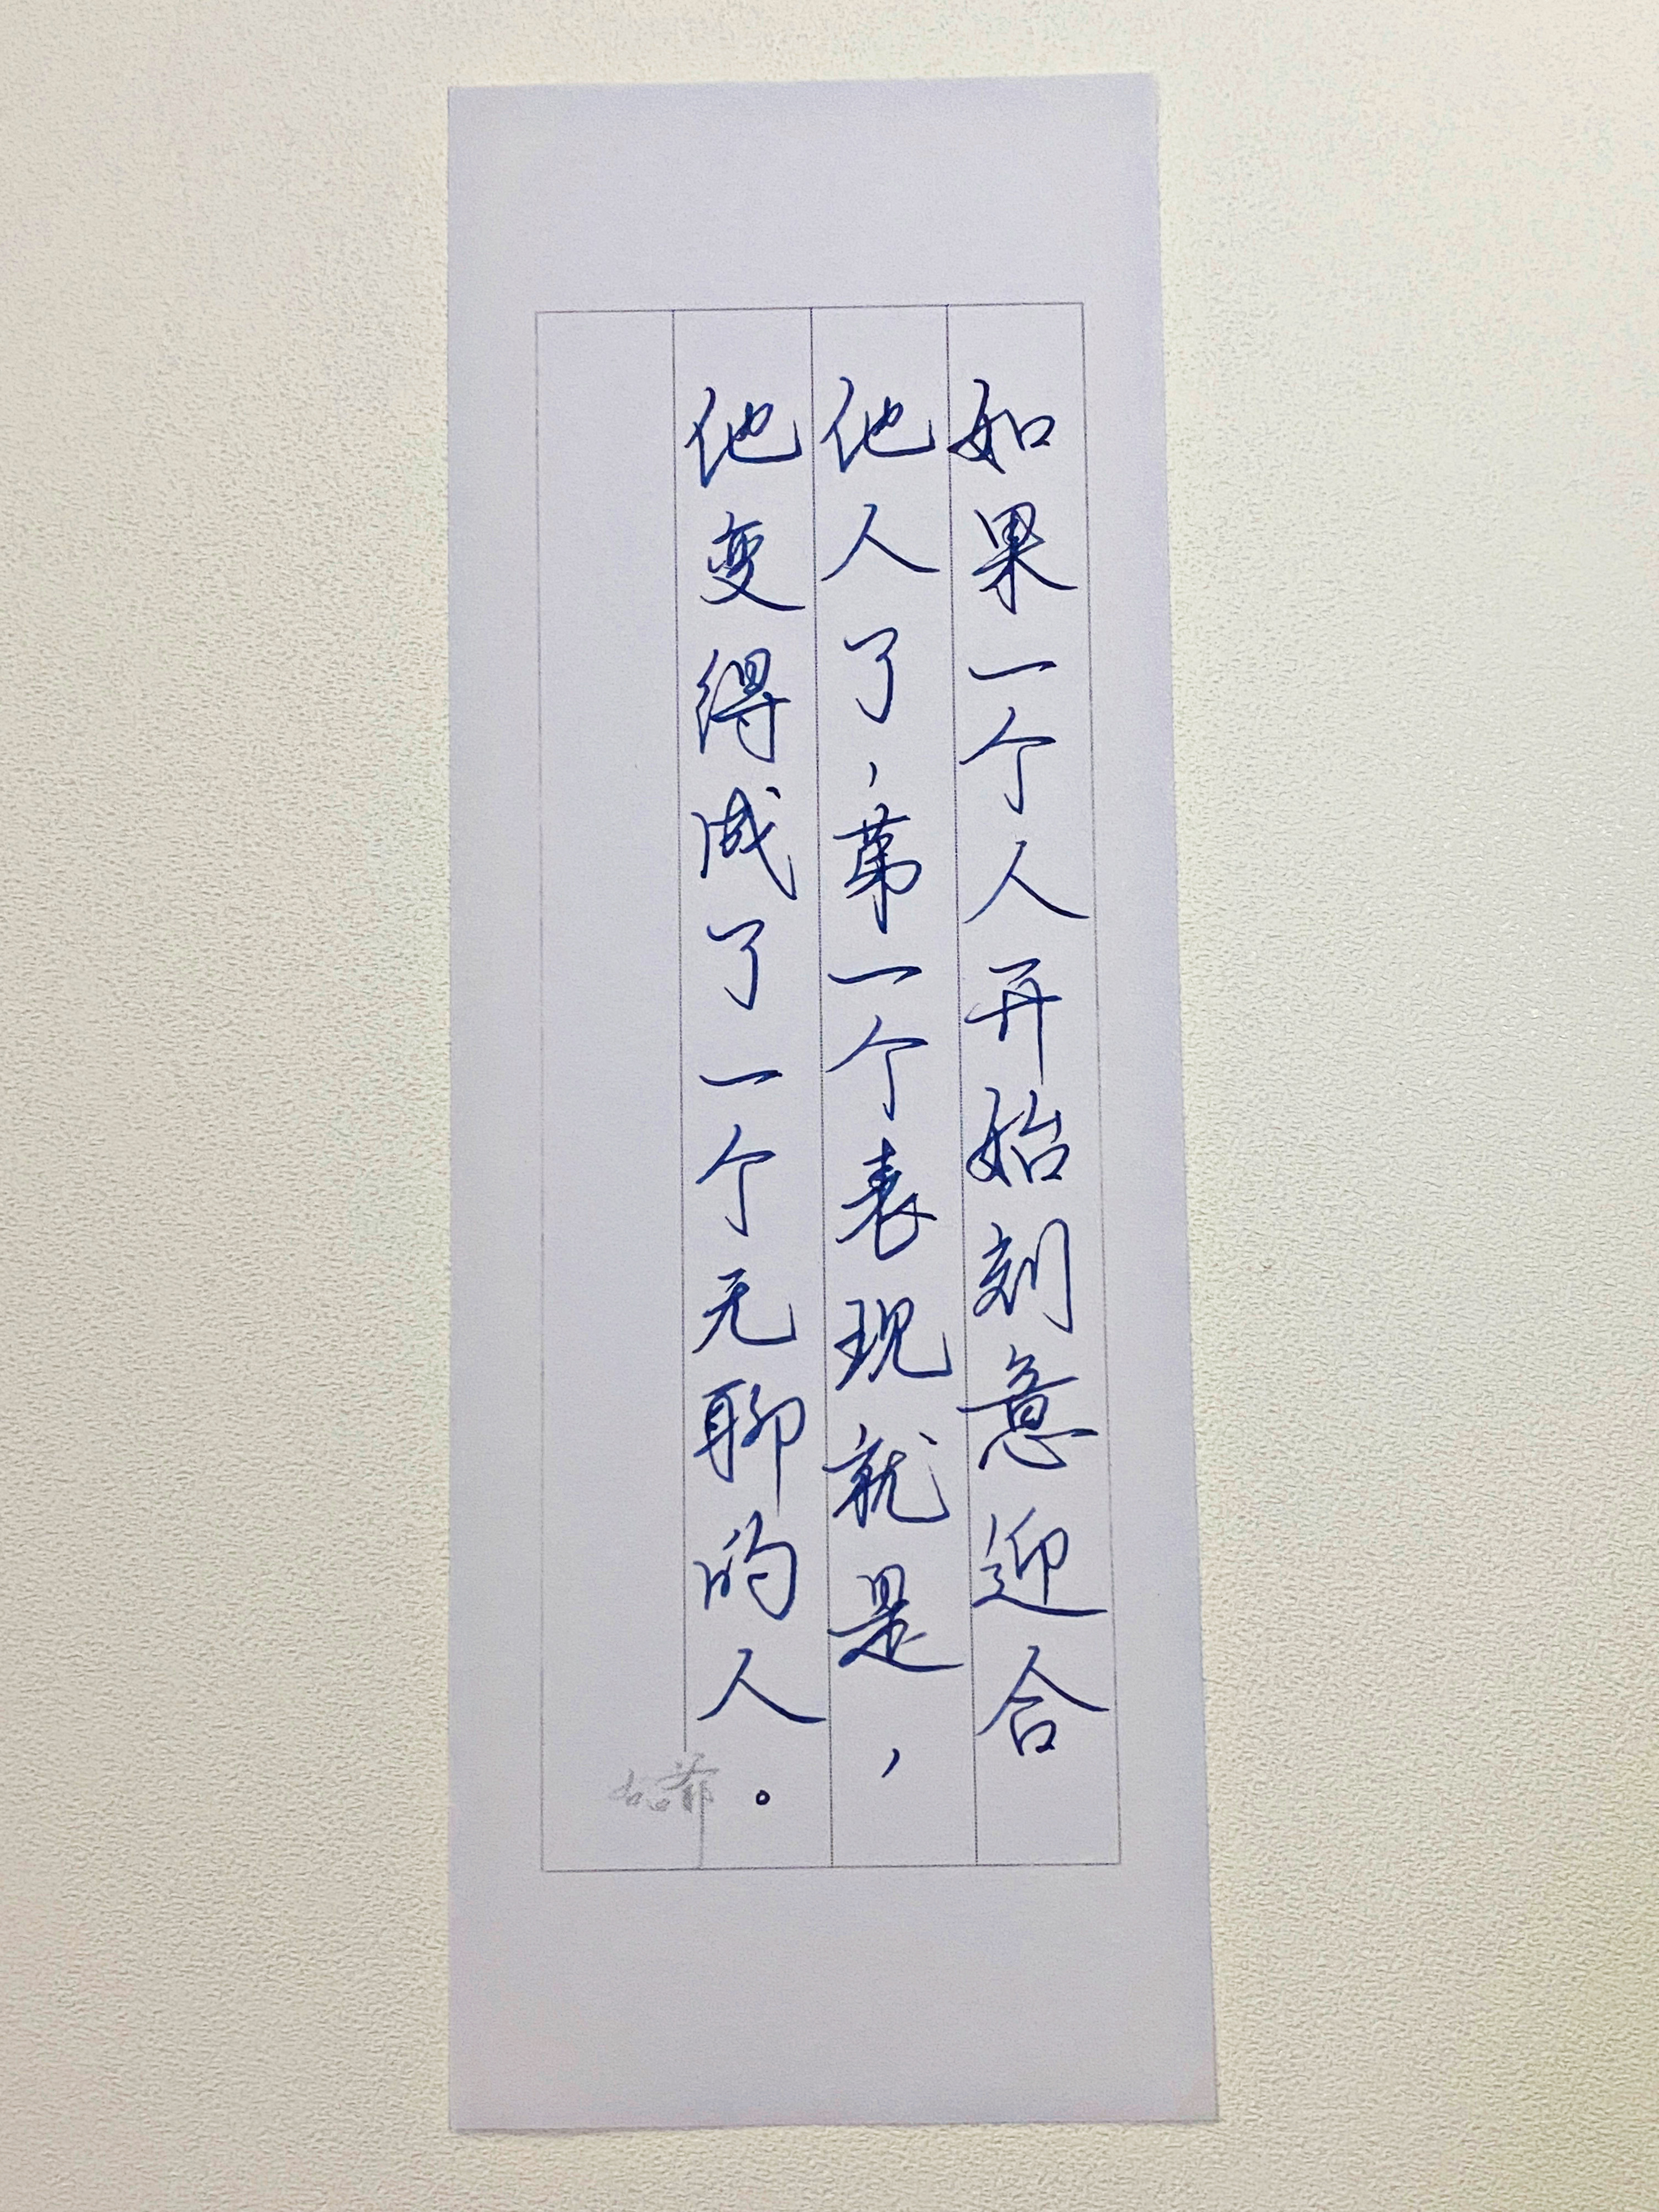 如果一个人开始刻意迎合
他人了，第一个表现就是，
他变得成了一个无聊的人。